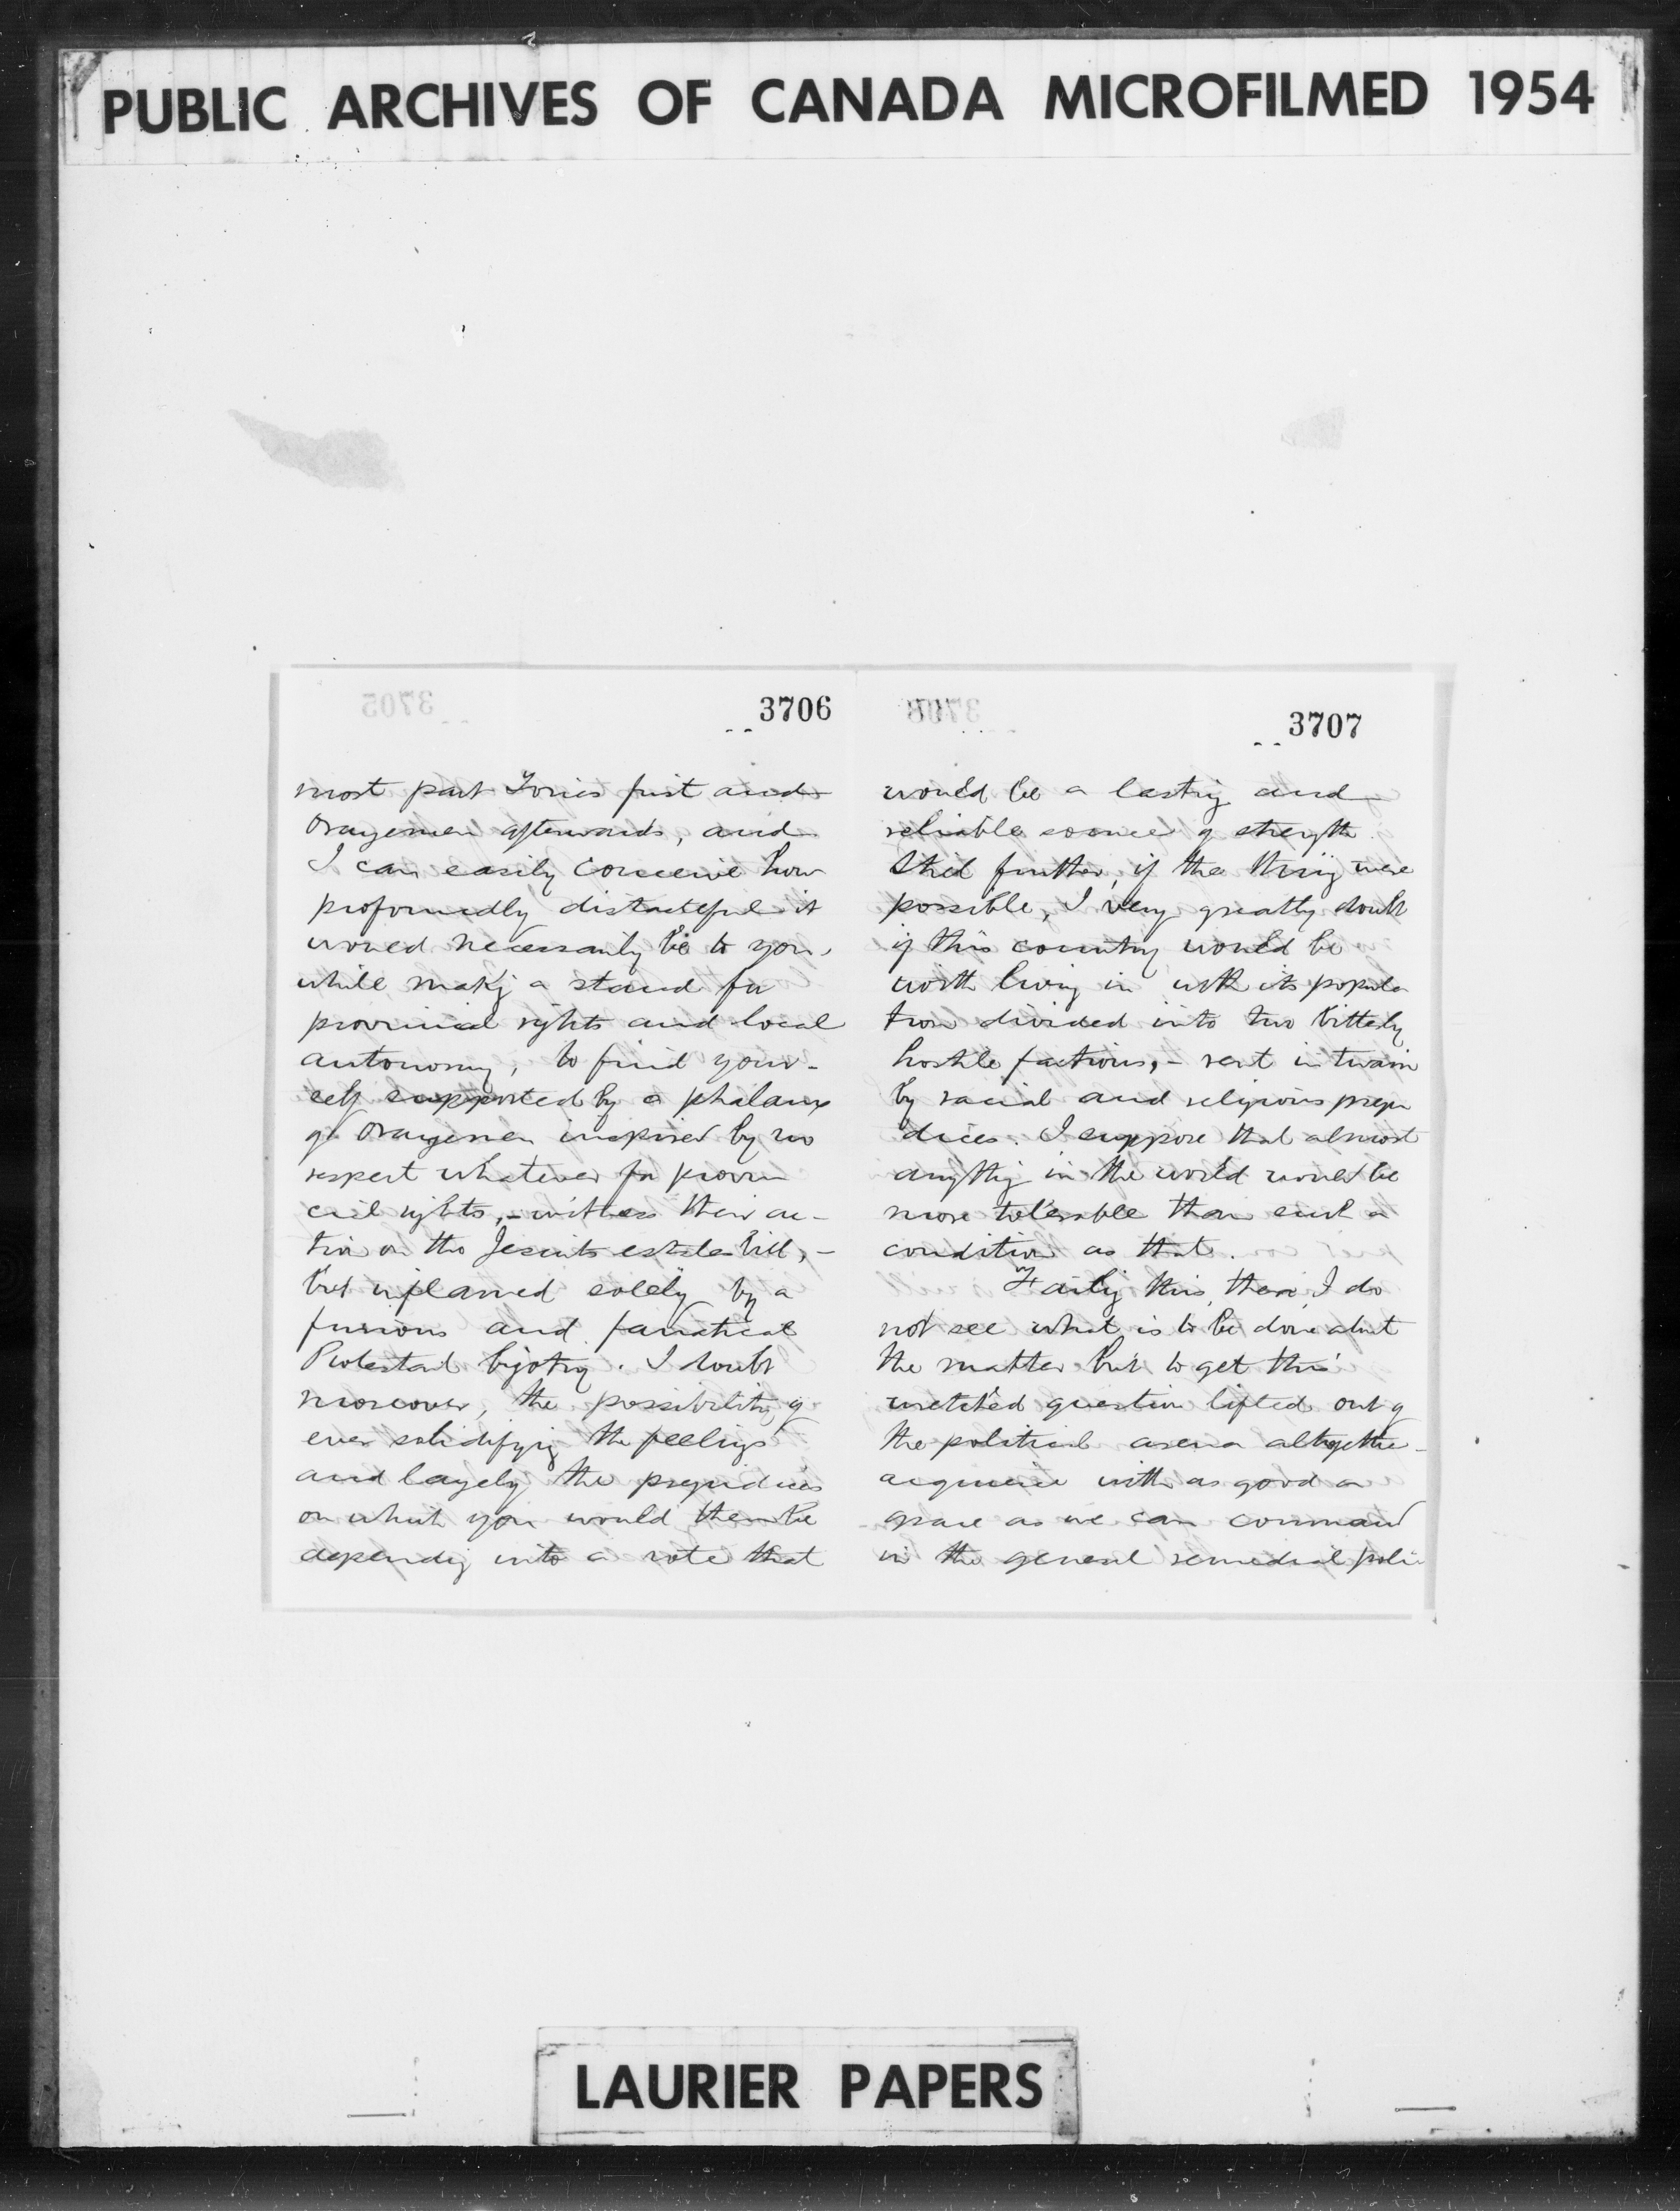 PUBLIC ARCHIVES OF CANADA MICROFILMED 1954
3706
most part Tories first and
Orangemen afterwards, and
I can easily conceive how
profoundly distasteful it
would necessarily be to you,
while making a stand for
provincial rights and local
autonomy, to find your-
self supported by a phalanx
of Orangemen inspired by no
respect whatever for provin
cial rights, - witness their ac-
tion on the Jesuits estates bill, -
but inflamed solely by a
furious and fanatical
Protestant bigotry. I doubt
moreover, the possibility of
ever solidifying the feelings
and largely the prejudices
on which you would then be
depending into a vote that
3707
would be a lasting and
reliable source of strength.
Still further, if the thing were
possible, I very greatly doubt
if this country would be
worth living in with its popula
tion divided into two bitterly
hostile factions, - rent in twain
by racial and religious preju
dices. I suppose that almost
anything in the world would be
more tolerable than such a
condition as that.
Failing this, then, I do
not see what is to be done about
the matter but to get this
wretched question lifted out of
the political arena altogether -
acquiesce with as good a
grace as we can command
in the general remedial poli-
LAURIER PAPERS